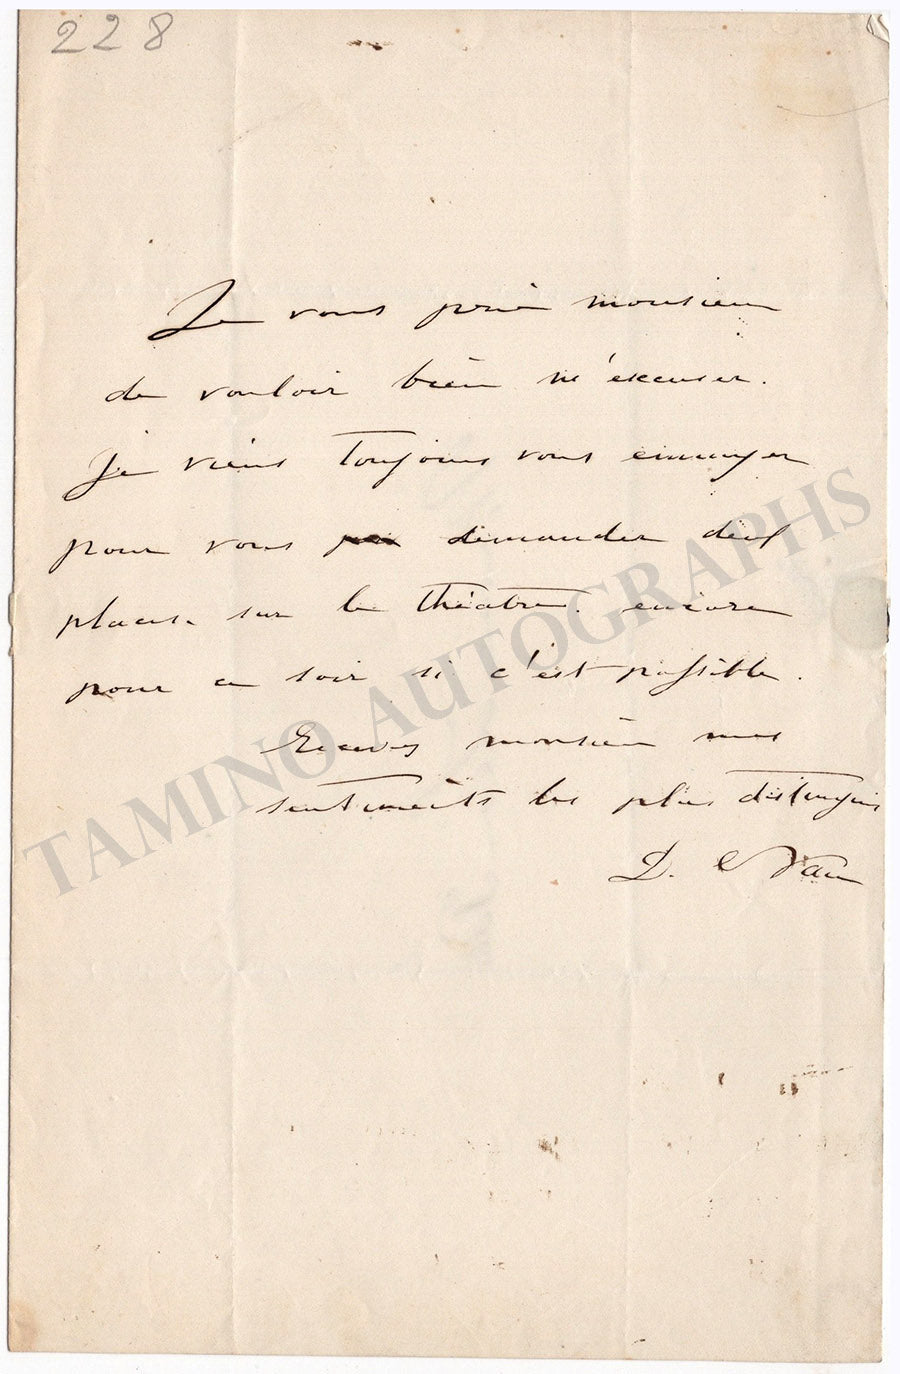 228
Je vous prie monsieur
de vouloir bien m'excuser.
Je viens toujours vous ennuyer
pour vous demander deux
places sur le théatre. encore
pour ce soir si c'est possible.
Recevez monsieur mes
sentiments les plus distingués
D. Nau
TAMINO AUTOGRAPHS